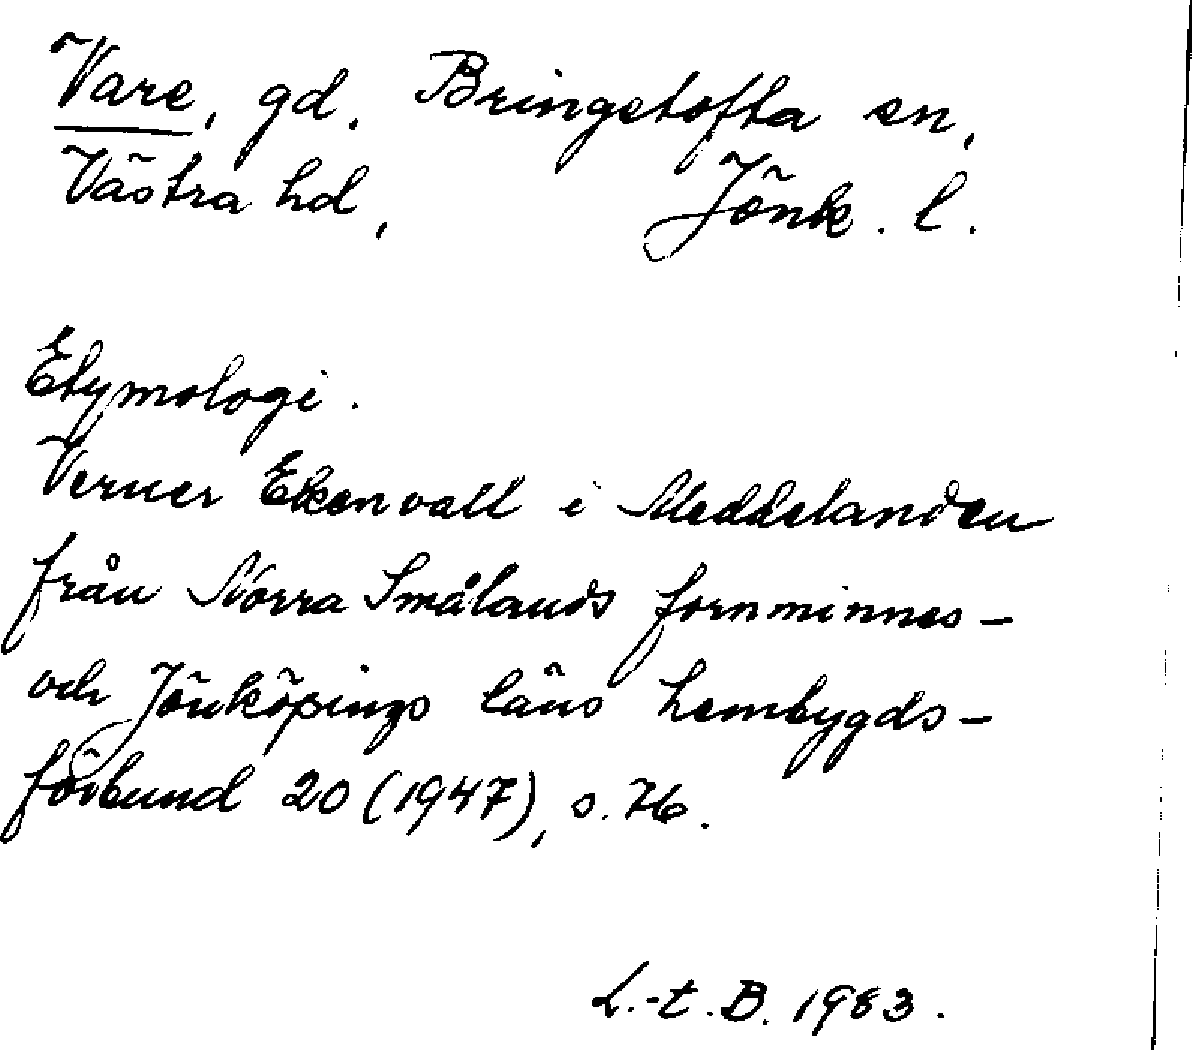 Vare, gd. Bringetofta sn,
Västra hd, Jönk. l.
Etymologi.
Verner Ekenvall i Meddelanden
från Norra Smålands fornminnes-
och Jönköpings läns hembygds-
förbund 20 (1947), s. 76.
L.-t. B. 1983.